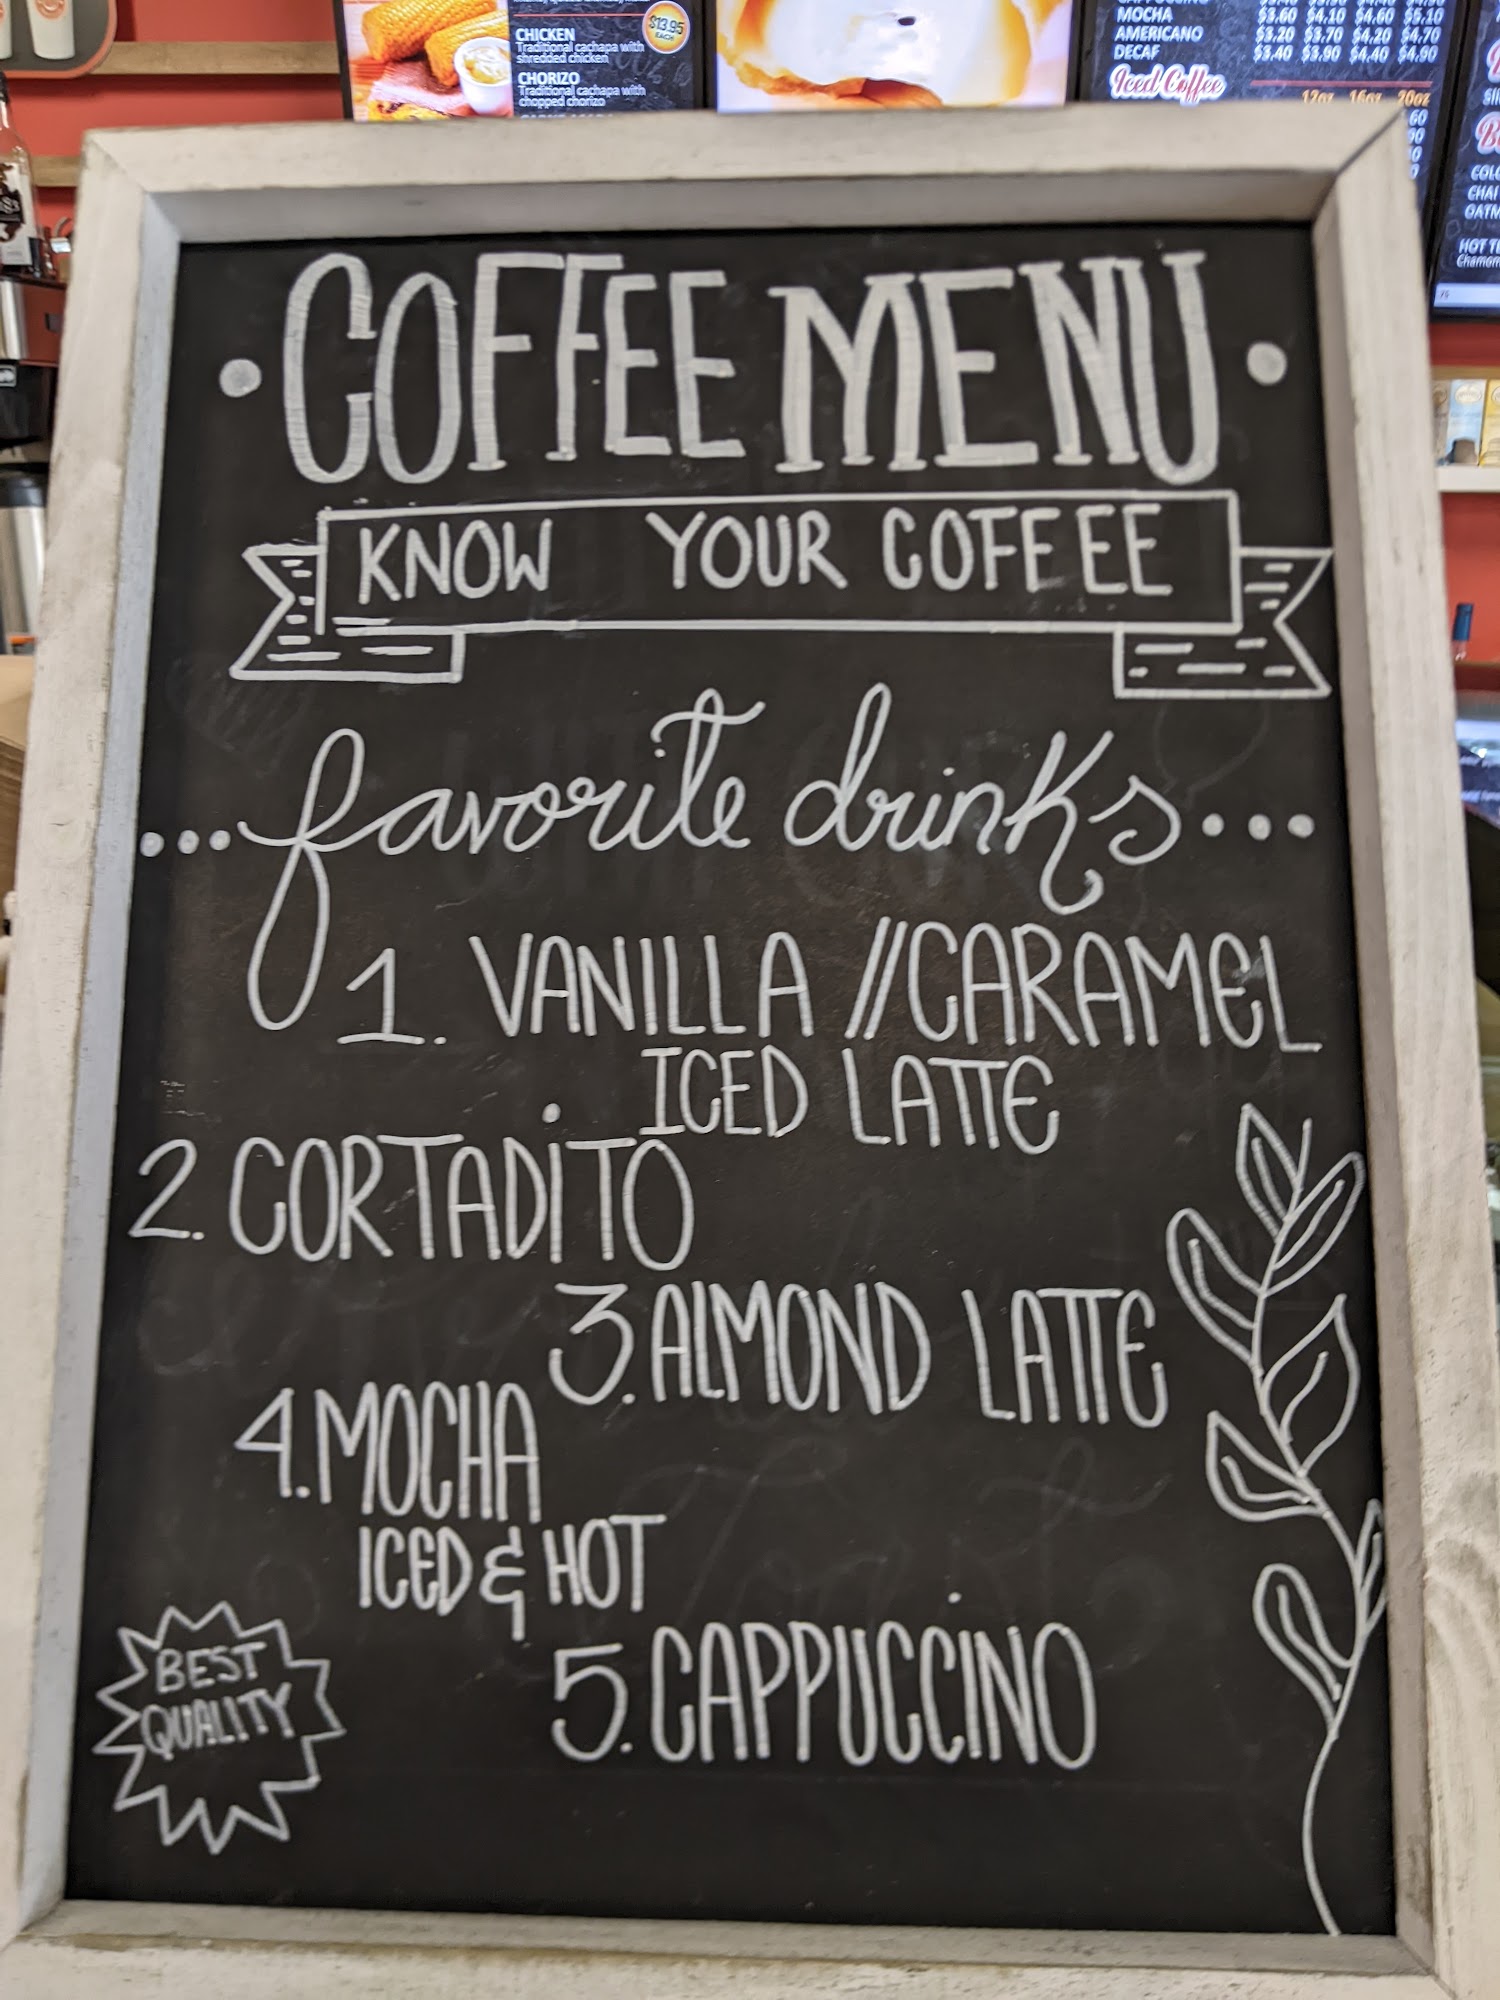 CHICKEN
Traditional cachapa with
shredded chicken
$13.95
EACH
CHORIZO
Traditional cachapa with
chopped chorizo
MOCHA $3.60 $4.10 $4.60 $5.10
AMERICANO $3.20 $3.70 $4.20 $4.70
DECAF $3.40 $3.90 $4.40 $4.90
Iced Coffee
12oz 16oz 20oz
COFFEE MENU
KNOW YOUR COFFEE
...favorite drinks...
1. VANILLA //CARAMEL
ICED LATTE
2. CORTADITO
3. ALMOND LATTE
4. MOCHA
ICED & HOT
5. CAPPUCCINO
BEST
QUALITY